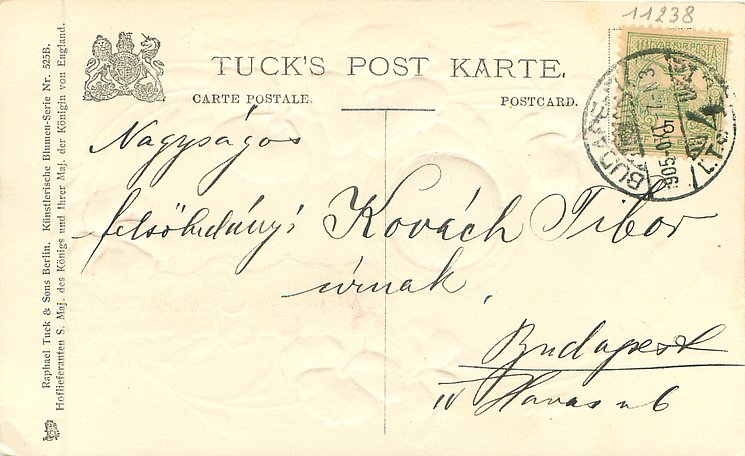 11238
TUCK'S POST KARTE.
CARTE POSTALE. POSTCARD.
MAGYAR KIR. POSTA
BUDAPEST
905
Nagyságos
felsöludányi Kovách Tibor
úrnak,
Budapest
IV Havas u 6
Raphael Tuck & Sons Berlin. Künstlerische Blumen-Serie Nr. 525B.
Hoflieferanten S. Maj. des Königs und Ihrer Maj. der Königin von England.